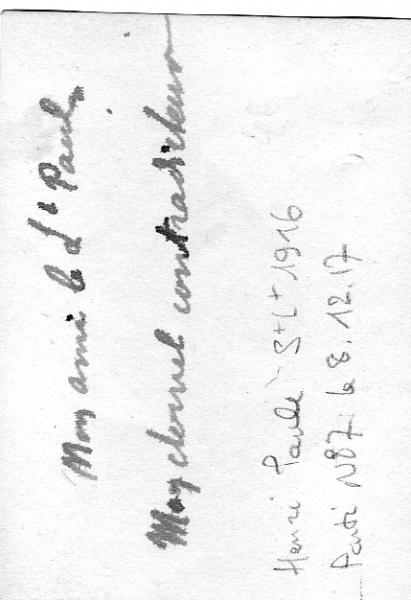 Mon ami le Lt Paulé
Mon éternel contradicteur
Henri Paulé S+L+ 1916
Parti N87 le 8.12.17